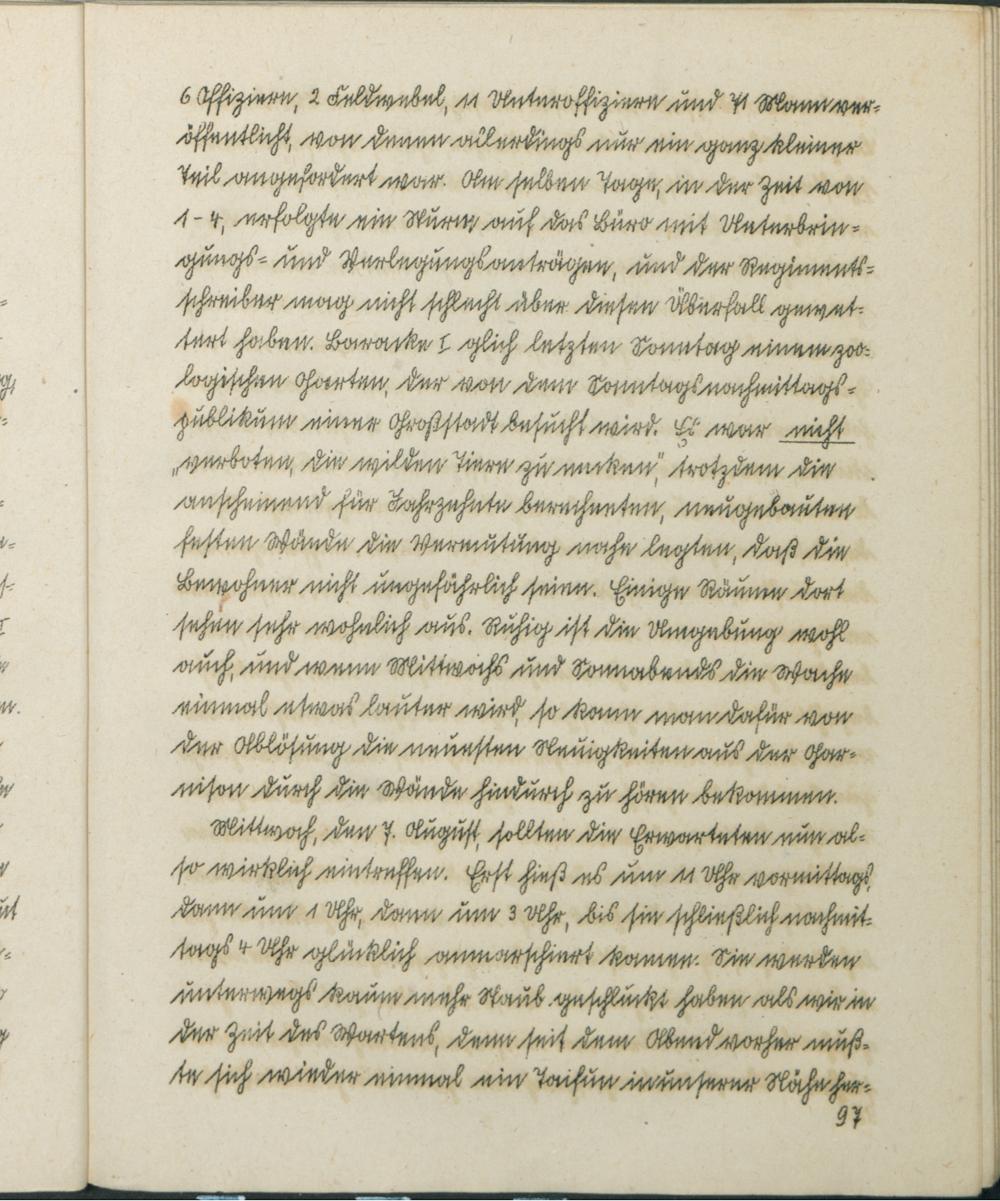 6 Offiziere, 2 Feldwebel, 11 Unteroffiziere und 71 Mann ver=
öffentlicht, von denen allerdings nur ein ganz kleiner
Teil angefordert war. Am selben Tage, in der Zeit von
1-4, erfolgte ein Sturm auf das Büro mit Unterbrin=
gungs= und Verlegungsanträgen, und der Regiments=
schreiber mag nicht schlecht über diesen Überfall gewet=
tert haben. Baracke I glich letzten Sonntag einem zoo=
logischen Garten, der von dem Sonntagsnachmittags=
publikum einer Großstadt besucht wird. Es war nicht
„verboten, die wilden Tiere zu necken“, trotzdem die
anscheinend für Jahrzehnte berechneten, neugebauten
festen Wände die Vermutung nahe legten, daß die
Bewohner nicht ungefährlich seien. Einige Räume dort
sehen sehr wohnlich aus. Ruhig ist die Umgebung wohl
auch, und wenn Mittwochs und Sonnabends die Wache
einmal etwas lauter wird, so kann man dafür von
der Ablösung die neuesten Neuigkeiten aus der Gar=
nison durch die Wände hindurch zu hören bekommen.
Mittwoch, den 7. August, sollten die Erwarteten nun al=
so wirklich eintreffen. Erst hieß es um 11 Uhr vormittags,
dann um 1 Uhr, dann um 3 Uhr, bis sie schließlich nachmit=
tags 4 Uhr glücklich anmarschiert kamen. Sie werden
unterwegs kaum mehr Staub geschluckt haben als wir in
der Zeit des Wartens, denn seit dem Abend vorher muß=
te sich wieder einmal ein Taifun in unserer Nähe her=
97